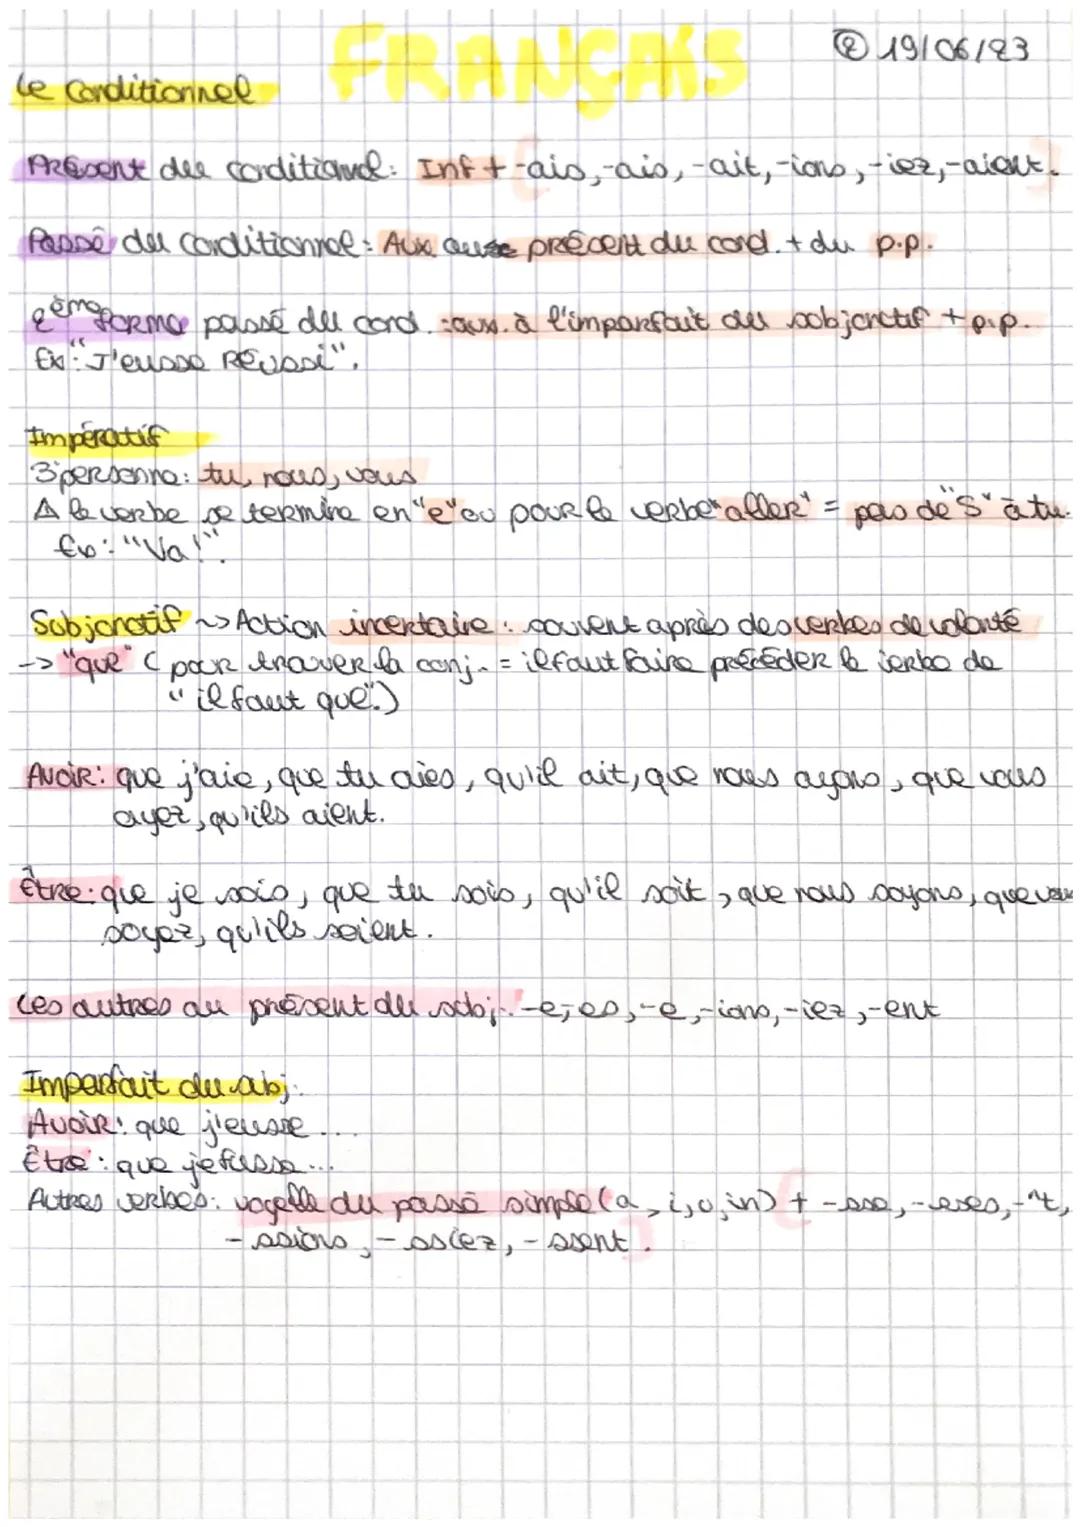 FRANÇAIS
② 19/06/23
Le Conditionnel
Présent du conditionnel : Inf + -ais, -ais, -ait, -ions, -iez, -aient.
Passé du conditionnel : Aux présent du cond. + du p.p.
2ème forme passé du cond. : aux. à l'imparfait du subjonctif + p.p.
Ex : "J'eusse Réussi".
Impératif
3 personne : tu, nous, vous
le verbe se termine en "e" ou pour le verbe "aller" = pas de "S" à tu.
Ex : "Va !".
Subjonctif ~> Action incertaire : souvent après des verbes de volonté
-> "que" ( pour trouver la conj. = il faut faire précéder le verbe de
"il faut que".)
Avoir : que j'aie, que tu aies, qu'il ait, que nous ayons, que vous
ayez, qu'ils aient.
Être : que je sois, que tu sois, qu'il soit, que nous soyons, que vous
soyez, qu'ils soient.
Les autres au présent du subj. : -e, -es, -e, -ions, -iez, -ent
Imparfait du subj.
Avoir : que j'eusse ...
Être : que je fusse ...
Autres verbes : voyelle du passé simple (a, i, u, in) + -sse, -sses, -^t,
-ssions, -ssiez, -ssent.